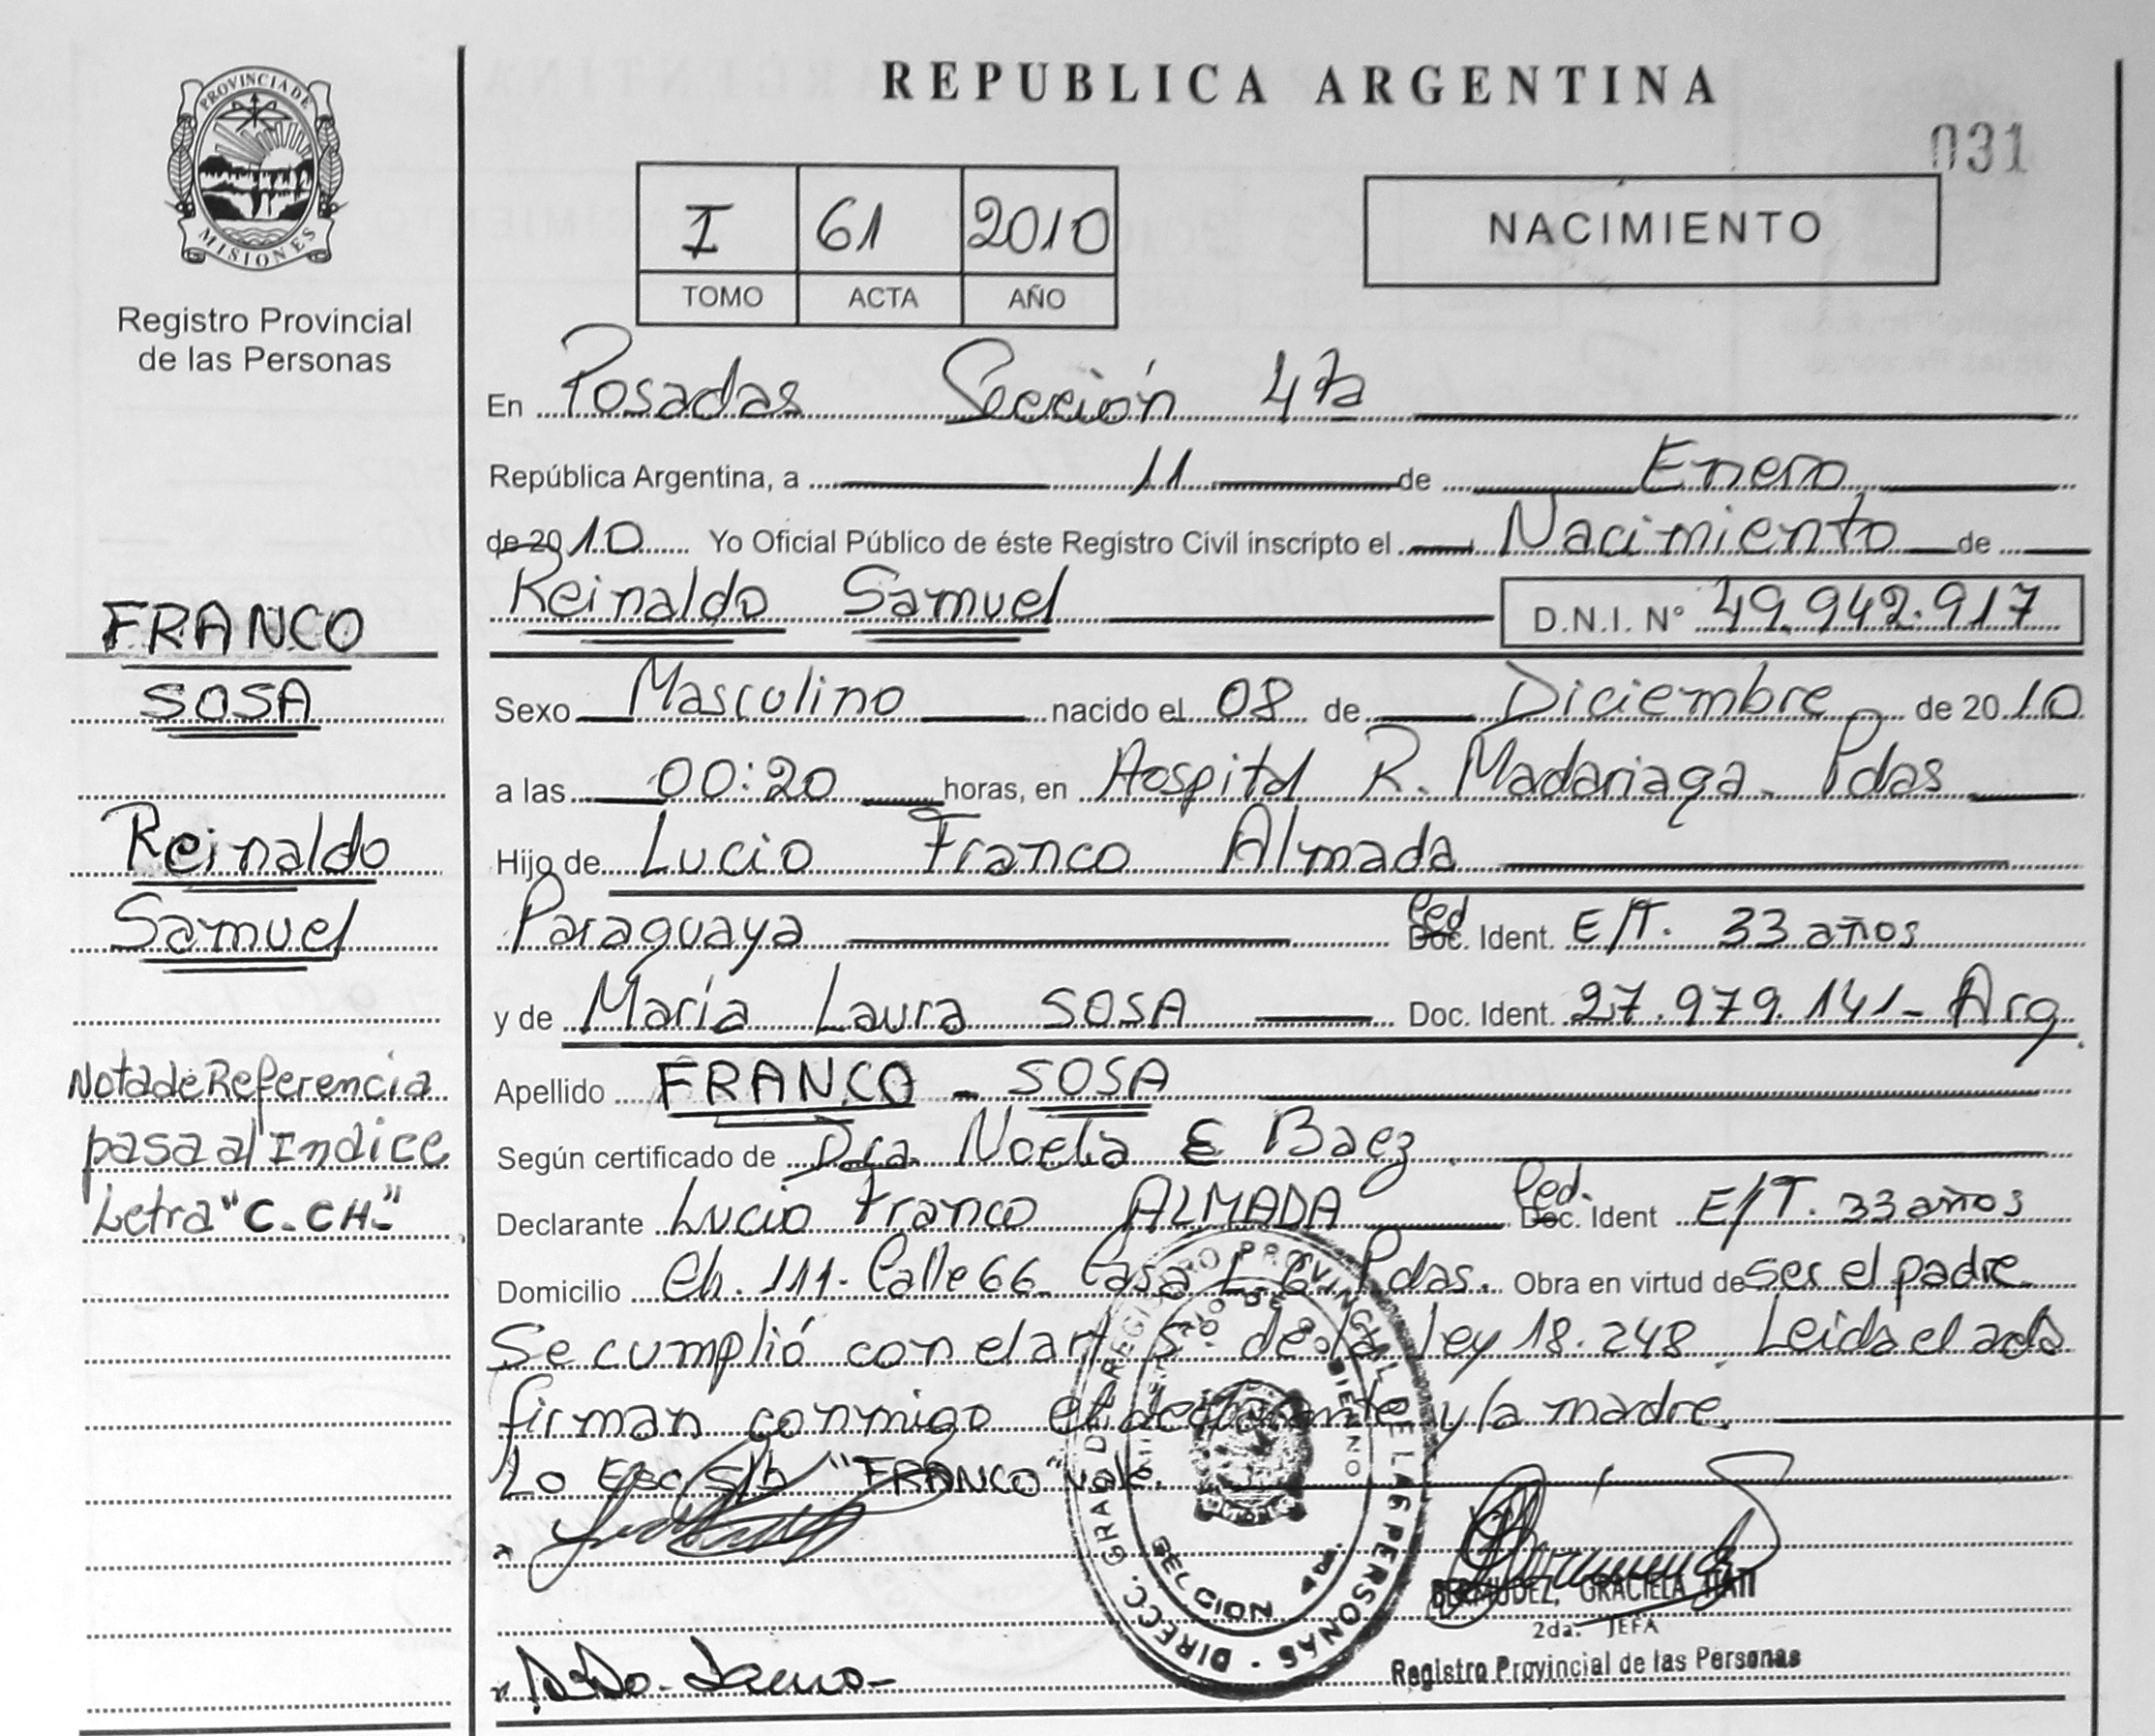 PROVINCIA DE
MISIONES
Registro Provincial
de las Personas
FRANCO
SOSA
Reinaldo
Samuel
Nota de Referencia
pasa al Indice
Letra "C.-CH.-"
REPUBLICA ARGENTINA
031
I 61 2010
TOMO ACTA AÑO
NACIMIENTO
En Posadas Sección 4ta
República Argentina, a 11 de Enero
de 2010 Yo Oficial Público de éste Registro Civil inscripto el Nacimiento de
Reinaldo Samuel D.N.I. N° 49.942.917
Sexo Masculino nacido el 08 de Diciembre de 2010
a las 00:20 horas, en Hospital R. Madariaga - Pdas
Hijo de Lucio Franco Almada
Paraguaya Ced Doc. Ident. E/T. 33 años
y de María Laura SOSA Doc. Ident. 27.979.141- Arg.
Apellido FRANCO - SOSA
Según certificado de Dra. Noelia E Baez.
Declarante Lucio Franco ALMADA Ced. Doc. Ident E/T. 33 años
Domicilio Ch. 111- Calle 66- Casa L. 6. Pdas. Obra en virtud de ser el padre
Se cumplió con el art 5°. de la ley 18.248. Leida el acta
firman conmigo el declarante y la madre.
Lo Esc S/b "FRANCO" vale.
DIRECC. GRAL DE REGISTRO PROVINCIAL DE LAS PERSONAS
MINISTERIO DE GOBIERNO
BERMUDEZ, GRACIELA ITATI
2da. JEFA
Registro Provincial de las Personas